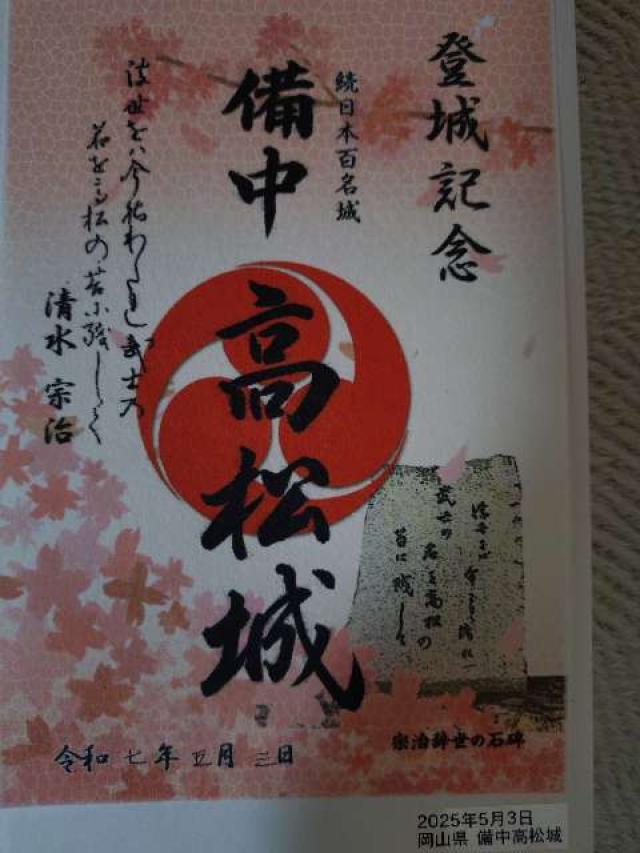 登城記念
続日本百名城
備中
高松城
浮世をハ今社わたれ武士の
名を高松の苔小残して
清水 宗治
名を高松の
苔に残して
宗治辞世の石碑
令和七年五月三日
2025年5月3日
岡山県 備中高松城